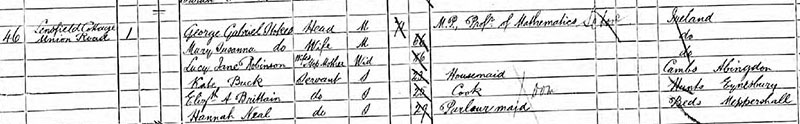 46 Lensfield Cottage Union Road 1 George Gabriel Stokes Head M M.P., Profr. of Mathematics Ireland
Mary Susanna do Wife M do
Lucy Jane Robinson Wife's Step Mother Wid do
Kate Buck Servant S 23 Housemaid Cambs Abingdon
Elizth A Brittain do S 25 Cook Dom Hunts Eynesbury
Hannah Neal do S 29 Parlourmaid Beds Meppershall